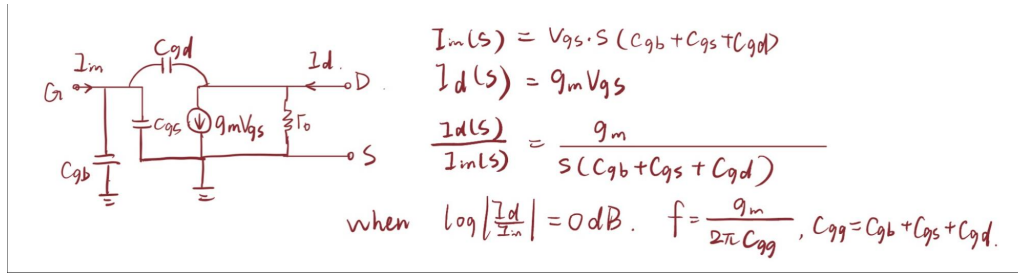 Cgd
Iin
Id.
G
D
Cgs
gmVgs
ro
Cgb
S
Iin(s) = Vgs·S(Cgb+Cgs+Cgd)
Id(s) = gmVgs
Id(s)/Iin(s) = gm/S(Cgb+Cgs+Cgd)
when log|Id/Iin| = 0dB. f = gm/2πCgg, Cgg=Cgb+Cgs+Cgd.